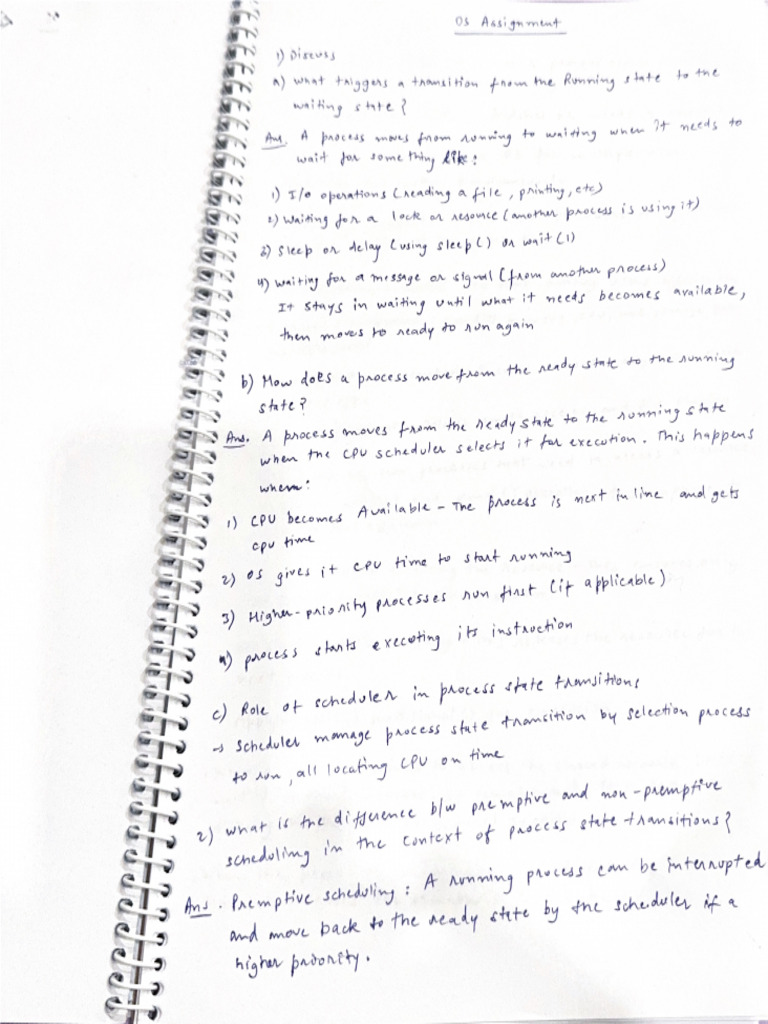 OS Assignment
1) Discuss
a) What triggers a transition from the Running state to the
waiting state?
Ans. A process moves from running to waiting when it needs to
wait for something like:
1) I/O operations (reading a file, printing, etc)
2) Waiting for a lock or resource (another process is using it)
3) Sleep or delay (using sleep() or wait())
4) Waiting for a message or signal (from another process)
It stays in waiting until what it needs becomes available,
then moves to ready to run again
b) How does a process move from the ready state to the running
state?
Ans. A process moves from the ready state to the running state
when the CPU scheduler selects it for execution. This happens
when:
1) CPU becomes Available - The process is next in line and gets
cpu time
2) OS gives it CPU time to start running
3) Higher-priority processes run first (if applicable)
4) process starts executing its instruction
c) Role of scheduler in process state transitions
→ scheduler manage process state transition by selection process
to run, all locating CPU on time
2) what is the difference b/w premptive and non-premptive
scheduling in the context of process state transitions?
Ans. Premptive scheduling: A running process can be interrupted
and move back to the ready state by the scheduler if a
higher priority.